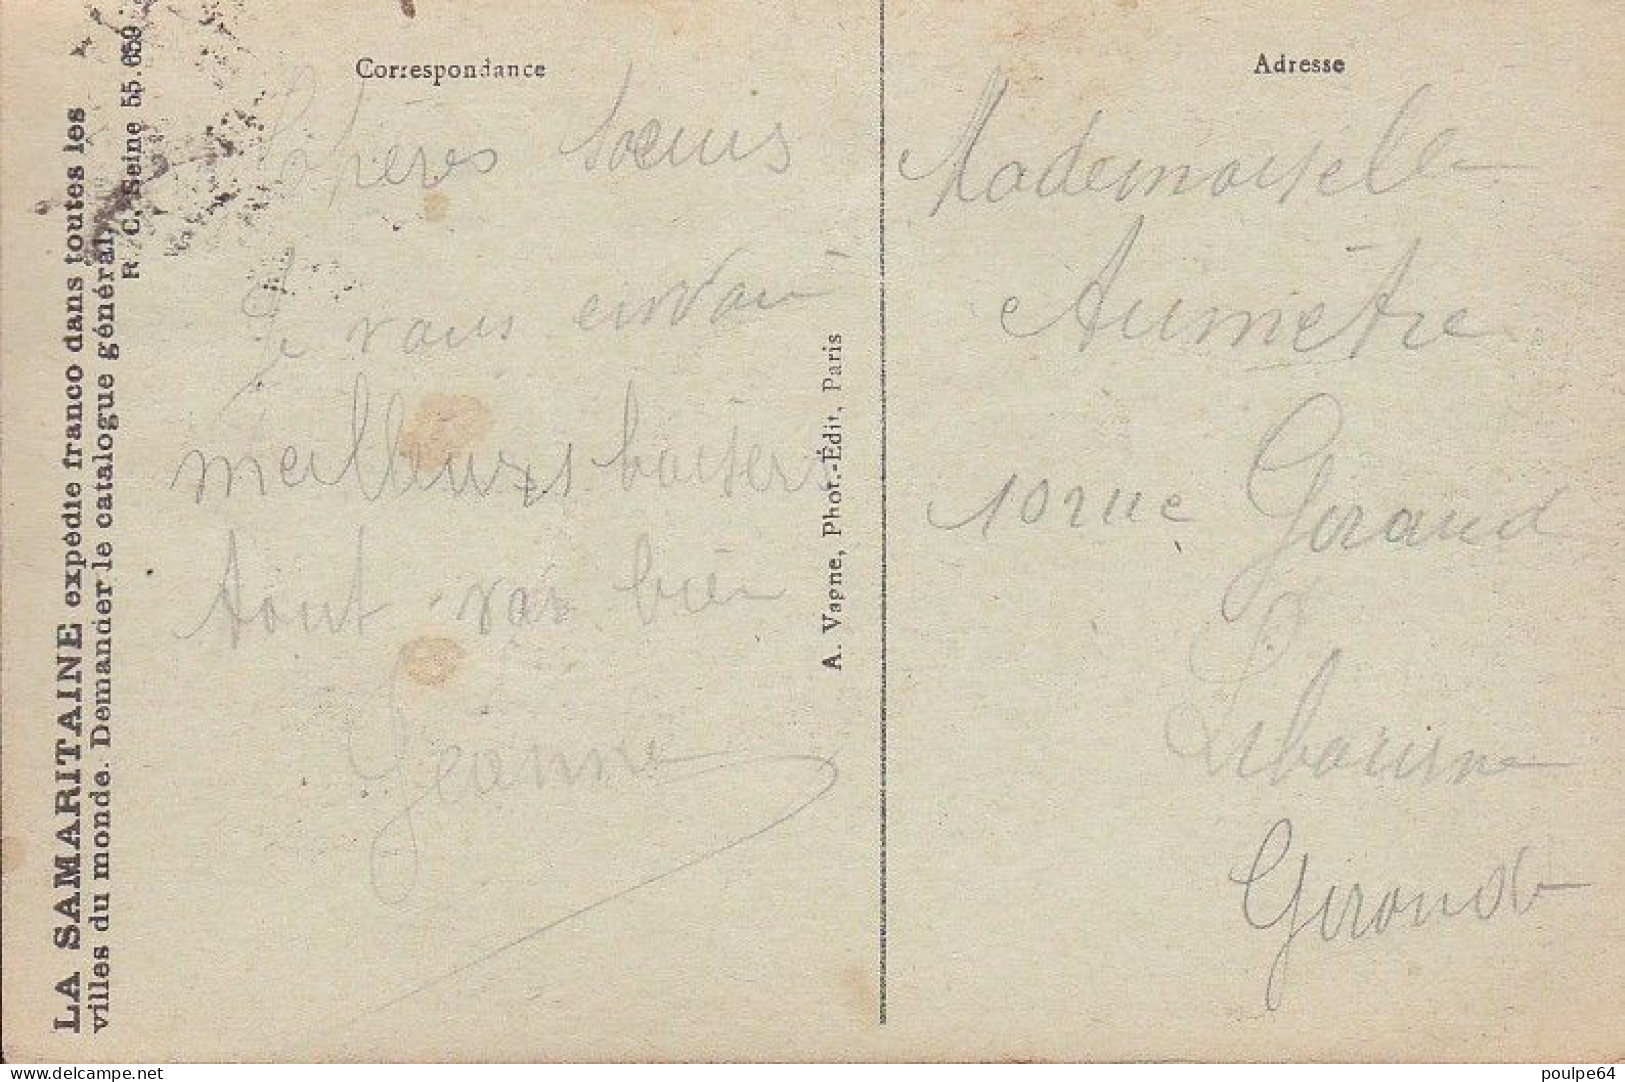 LA SAMARITAINE expédie franco dans toutes les
villes du monde. Demander le catalogue général,
R. C. Seine 55.659
Correspondance
Chères sœurs
Je vous envoai
meilleurs baisers
tout vai bien
Jeanne
A. Vagne, Phot.-Édit, Paris
Adresse
Mademoiselle
Aumètre
10 rue Giraud
Libourne
Gironde
delcampe.net
poulpe64